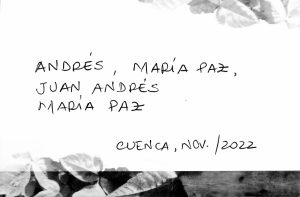 ANDRÉS, MARÍA PAZ,
JUAN ANDRÉS
MARÍA PAZ
CUENCA, NOV. / 2022